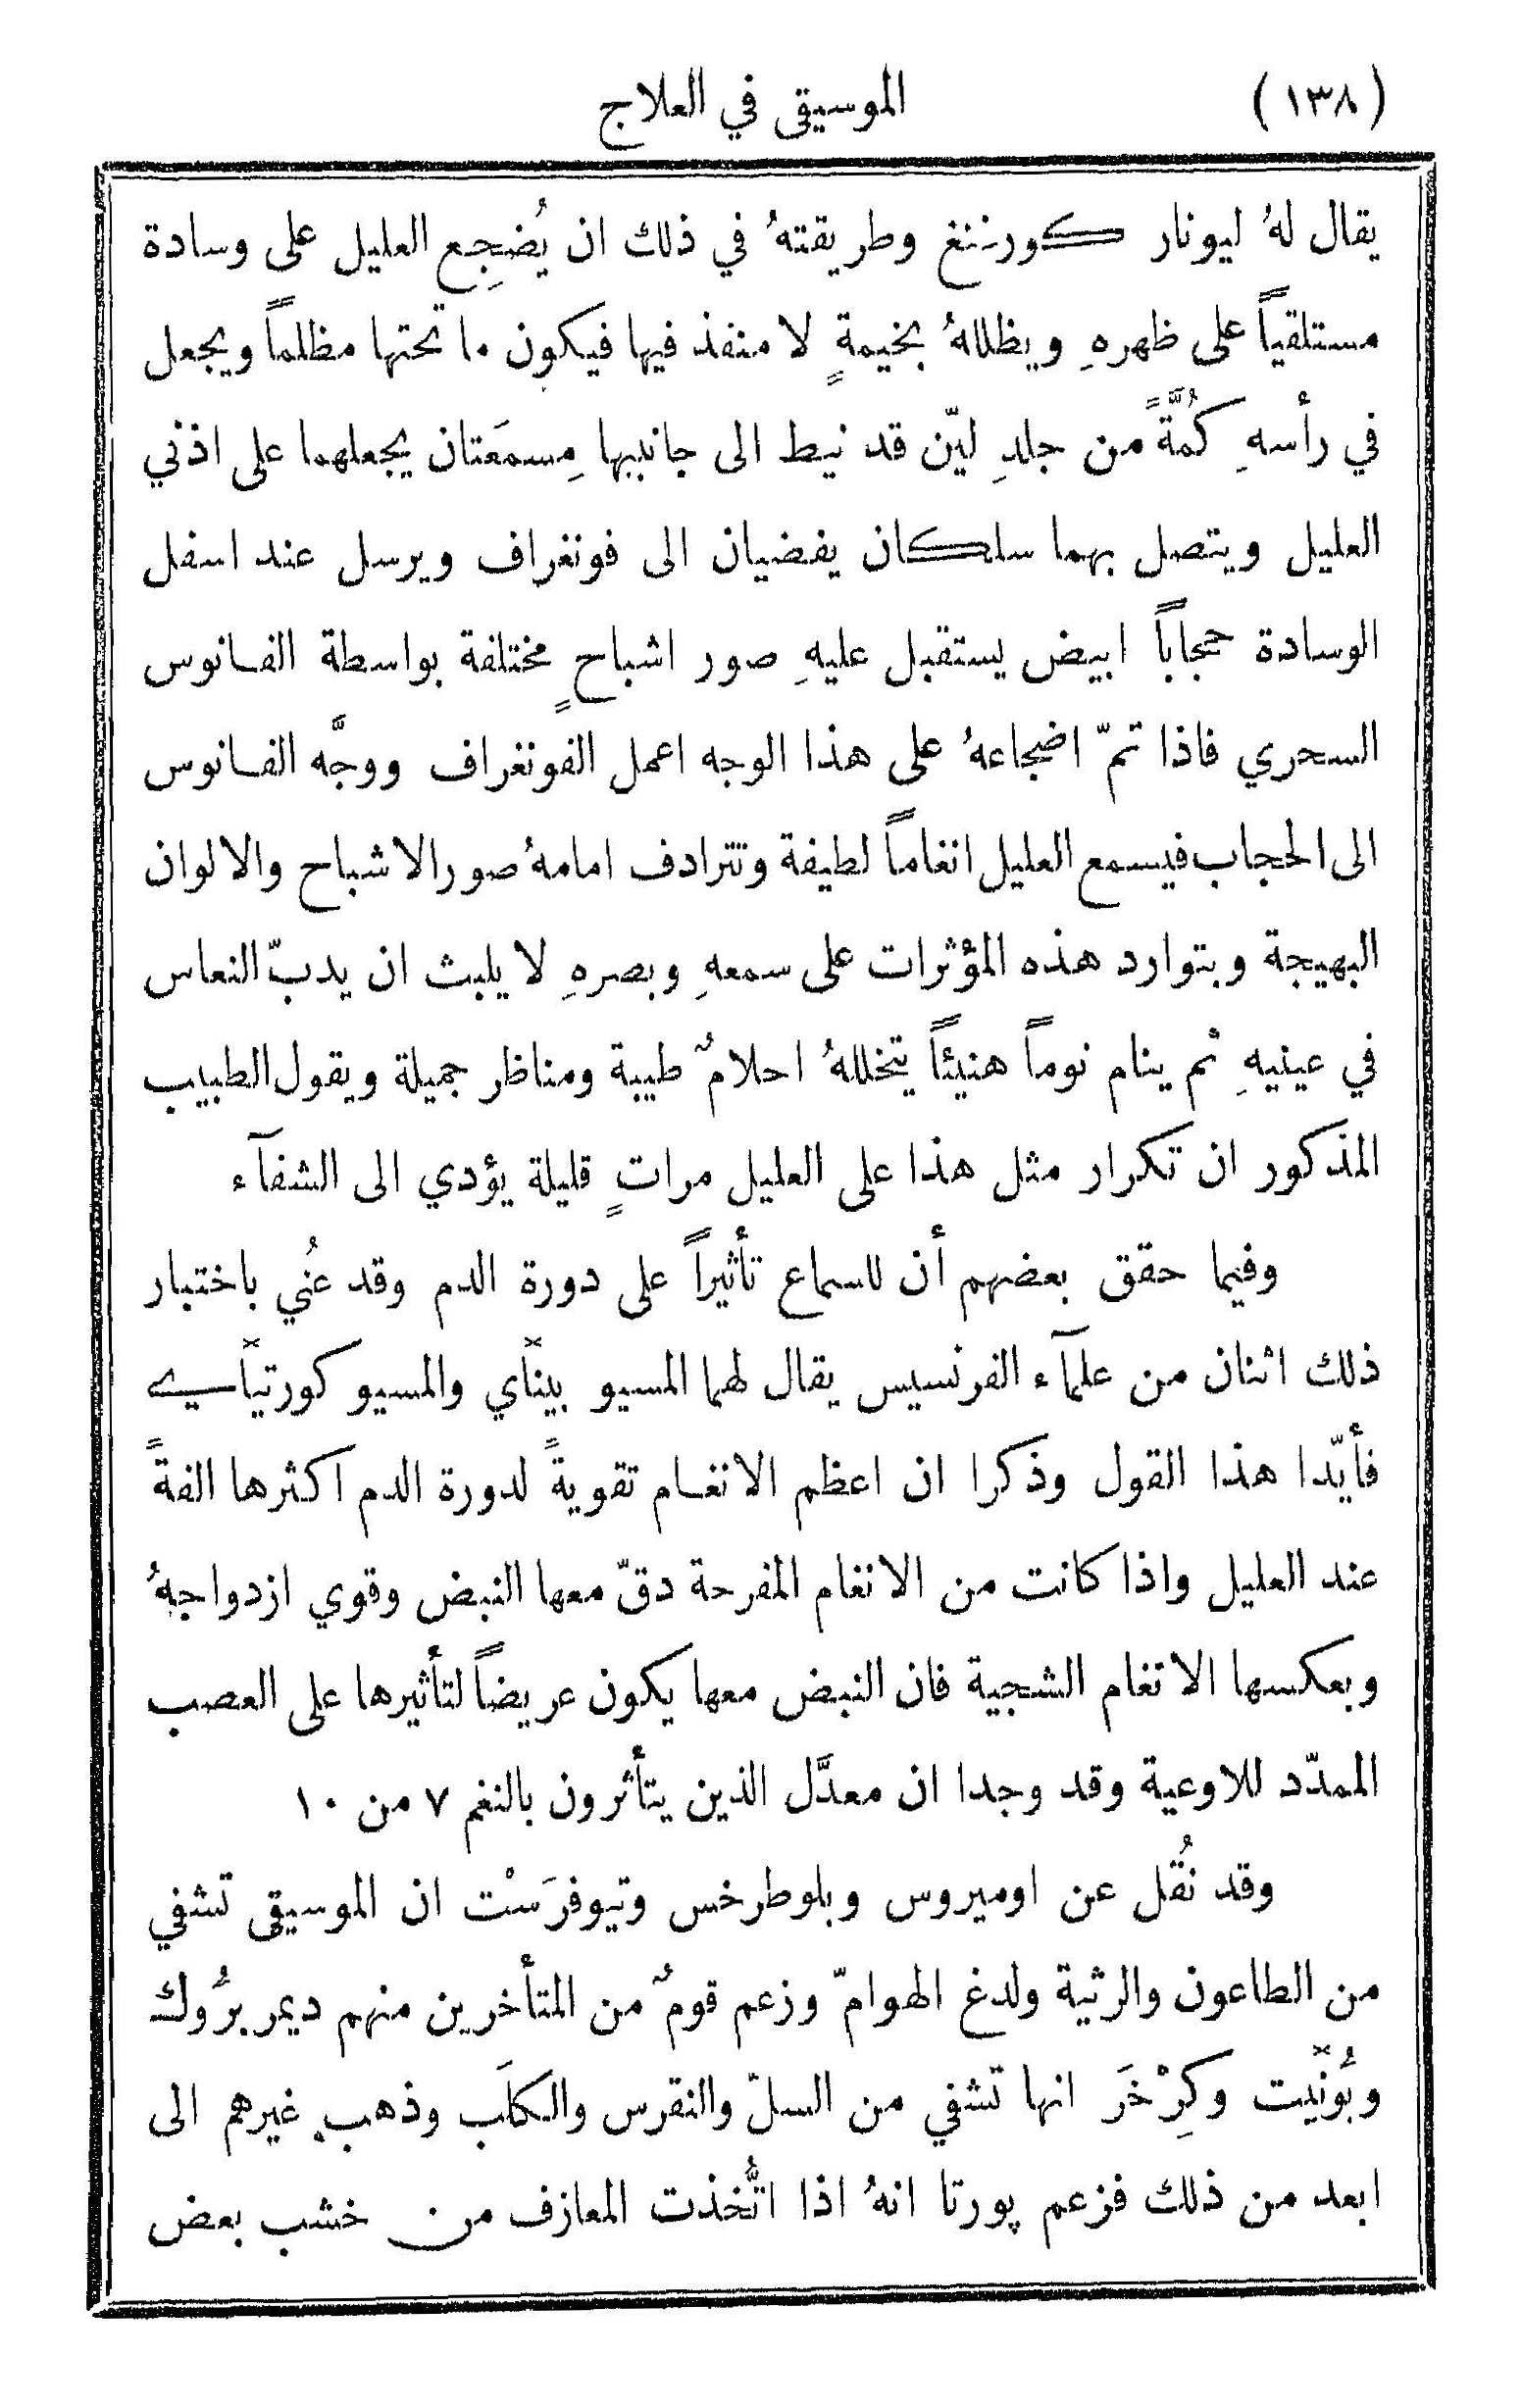 (١٣٨) الموسيقى في العلاج
يقال لهُ ليونار كورننغ وطريقتهُ في ذلك ان يُضجِع العليل على وسادة
مستلقياً على ظهرهِ ويظللهُ بخيمةٍ لا منفذ فيها فيكون ما تحتها مظلماً ويجعل
في رأسهِ كُمَّةً من جلدِ ليّن قد نيط الى جانبيها مِسمَعتان يجعلهما على اذني
العليل ويتصل بهما سلكان يفضيان الى فونغراف ويرسل عند اسفل
الوسادة حجاباً ابيض يستقبل عليهِ صور اشباحٍ مختلفة بواسطة الفانوس
السحري فاذا تمّ اضجاعهُ على هذا الوجه اعمل الفونغراف ووجَّه الفانوس
الى الحجاب فيسمع العليل انغاماً لطيفة وتترادف امامهُ صور الاشباح والالوان
البهيجة وبتوارد هذه المؤثرات على سمعهِ وبصرهِ لا يلبث ان يدبّ النعاس
في عينيهِ ثم ينام نوماً هنيئاً يتخللهُ احلامٌ طيبة ومناظر جميلة ويقول الطبيب
المذكور ان تكرار مثل هذا على العليل مراتٍ قليلة يؤدي الى الشفآء
وفيما حقق بعضهم أن للسماع تأثيراً على دورة الدم وقد عُني باختبار
ذلك اثنان من علمآء الفرنسيس يقال لهما المسيو بينآي والمسيو كورتيآسي
فأيّدا هذا القول وذكرا ان اعظم الانغام تقويةً لدورة الدم اكثرها الفةً
عند العليل واذا كانت من الانغام المفرحة دقّ معها النبض وقوي ازدواجهُ
وبعكسها الانغام الشجية فان النبض معها يكون عريضاً لتأثيرها على العصب
الممدّد للاوعية وقد وجدا ان معدَّل الذين يتأثرون بالنغم ٧ من ١٠
وقد نُقل عن اوميروس وبلوطرخس وتيوفرَسْت ان الموسيقى تشفي
من الطاعون والرثية ولدغ الهوامّ وزعم قومٌ من المتأخرين منهم ديمربرُوك
وبُونّيت وكِرْخَر انها تشفي من السلّ والنقرس والكلَب وذهب غيرهم الى
ابعد من ذلك فزعم پورتا انهُ اذا اتُّخذت المعازف من خشب بعض